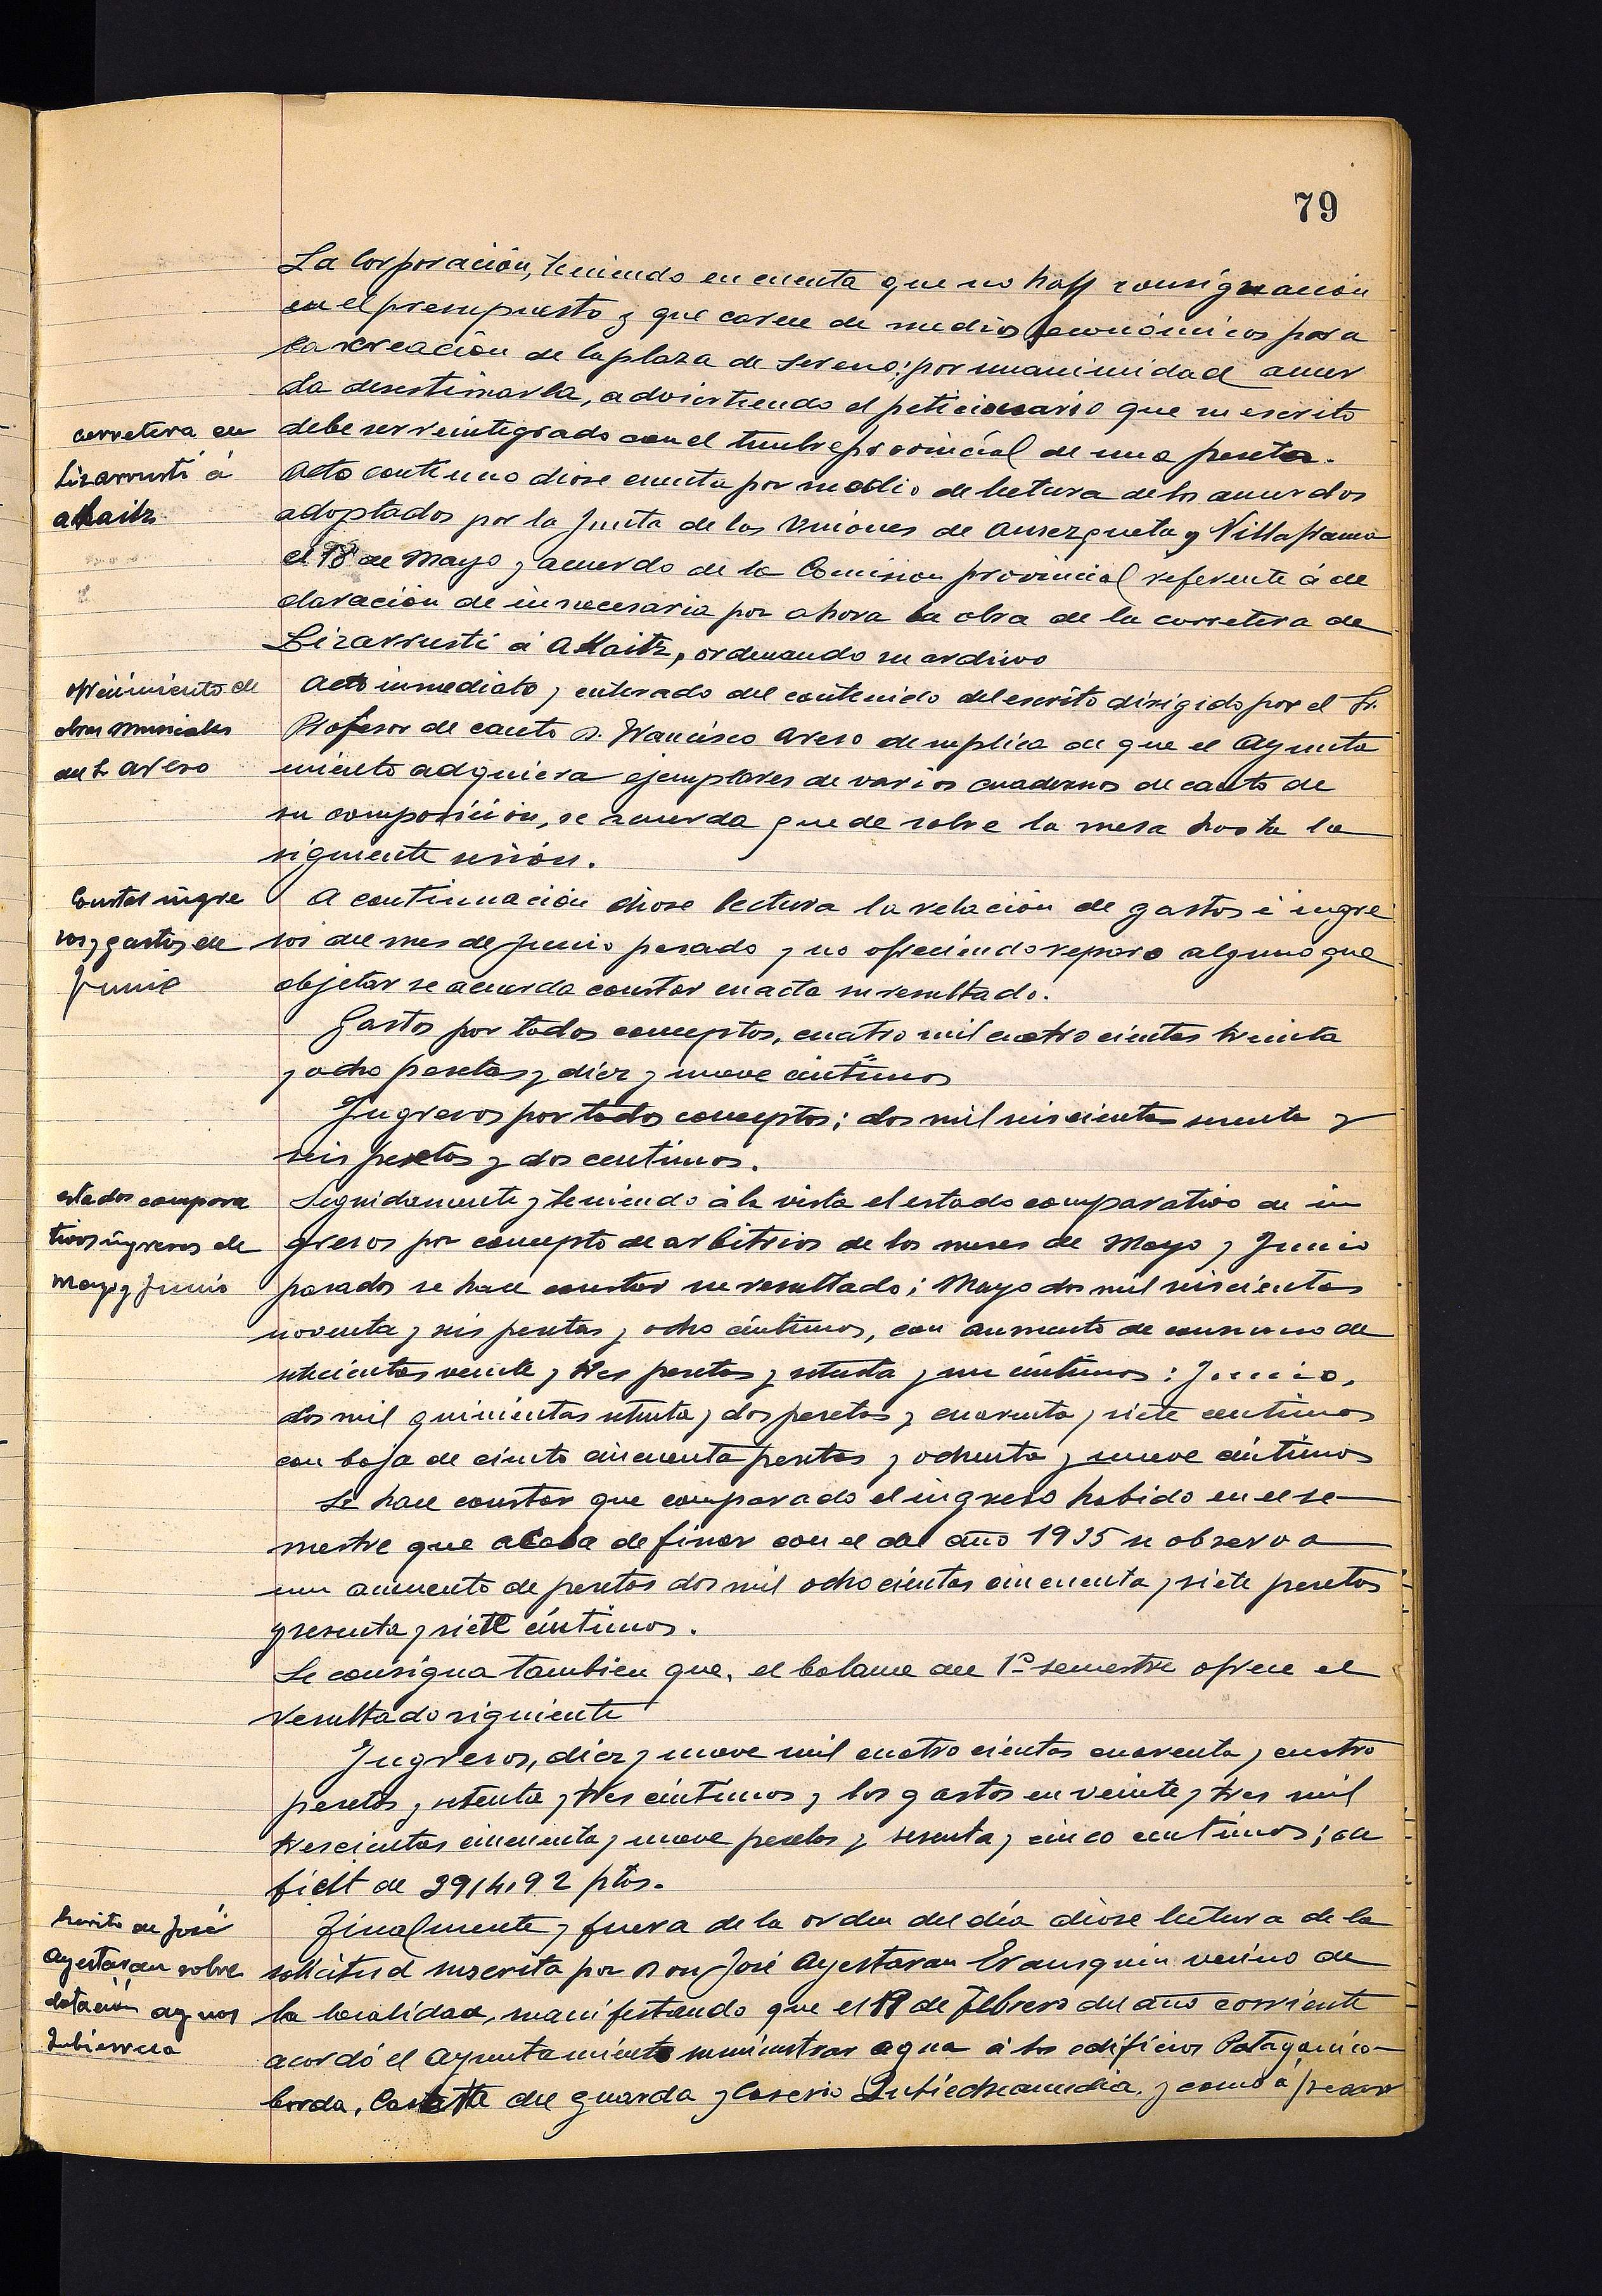 79
La Corporación, teniendo en cuenta que no hay consignación
en el presupuesto y que carece de medios económicos para
la creación de la plaza de sereno; por unanimidad acuer
da desestimarla, advirtiendo el peticionario que su escrito
debe ser reintegrado con el timbre provincial de una peseta.
carretera de
Lizarrusti á
Ataitz
Acto continuo diose cuenta por medio de lectura de los acuerdos
adoptados por la Junta de las Uniones de Amezqueta y Villafranca
el 18 de Mayo y acuerdo de la Comision provincial referente á de
claración de innecesaria por ahora la obra de la carretera de
Lizarrusti á Ataitz, ordenando su archivo
ofrecimiento de
obras musicales
del Sr Areso
Acto inmediato y enterado del contenido del escrito dirigido por el Sr.
Profesor de canto D. Francisco Areso de suplica de que el Ayunta
miento adquiera ejemplares de varios cuadernos de canto de
su composición, se acuerda quede sobre la mesa hasta la
siguiente sesión.
Constar ingre
sos y gastos de
Junio
A continuación diose lectura la relación de gastos é ingre
sos del mes de Junio pasado y no ofreciendo reparo alguno que
objetar se acuerda constar en acta su resultado.
Gastos por todos conceptos, cuatro mil cuatrocientas treinta
y ocho pesetas y diez y nueve céntimos
Ingresos por todos conceptos; dos mil seiscientas sesenta y
seis pesetas y dos centimos.
estados compara
tivos ingresos de
Mayo y Junio
Seguidamente y teniendo á la vista el estado comparativo de in
gresos por concepto de arbitrios de los meses de Mayo y Junio
pasados se hace constar su resultado; Mayo dos mil seiscientas
noventa y seis pesetas y ocho céntimos, con aumento de consumo de
setecientas veinte y tres pesetas y setenta y un céntimos: Junio,
dos mil quinientas setenta y dos pesetas y cuarenta y siete centimos
con baja de ciento cincuenta pesetas y ochenta y nueve céntimos
Se hace constar que comparado el ingreso habido en el se
mestre que acaba de finar con el del año 1935 se observa
un aumento de pesetas dos mil ochocientas cincuenta y siete pesetas
y sesenta y siete céntimos.
Se consigna tambien que, el balance del 1º semestre ofrece el
resultado siguiente
Ingresos, diez y nueve mil cuatrocientas cuarenta y cuatro
pesetas y setenta y tres céntimos y los gastos en veinte y tres mil
trescientas cincuenta y nueve pesetas y sesenta y cinco centimos; de
ficit de 3914,92 ptas.
Escrito de José
Ayestaran sobre
dotación aguas
Finalmente y fuera de la orden del día diose lectura de la
solicitud suscrita por Don José Ayestaran Erausquin vecino de
la localidad, manifestando que el de Febrero del año corriente
acordó el Ayuntamiento suministrar agua á los edificios Patagonico-
borda, Caseta del guarda y Caserio y como á